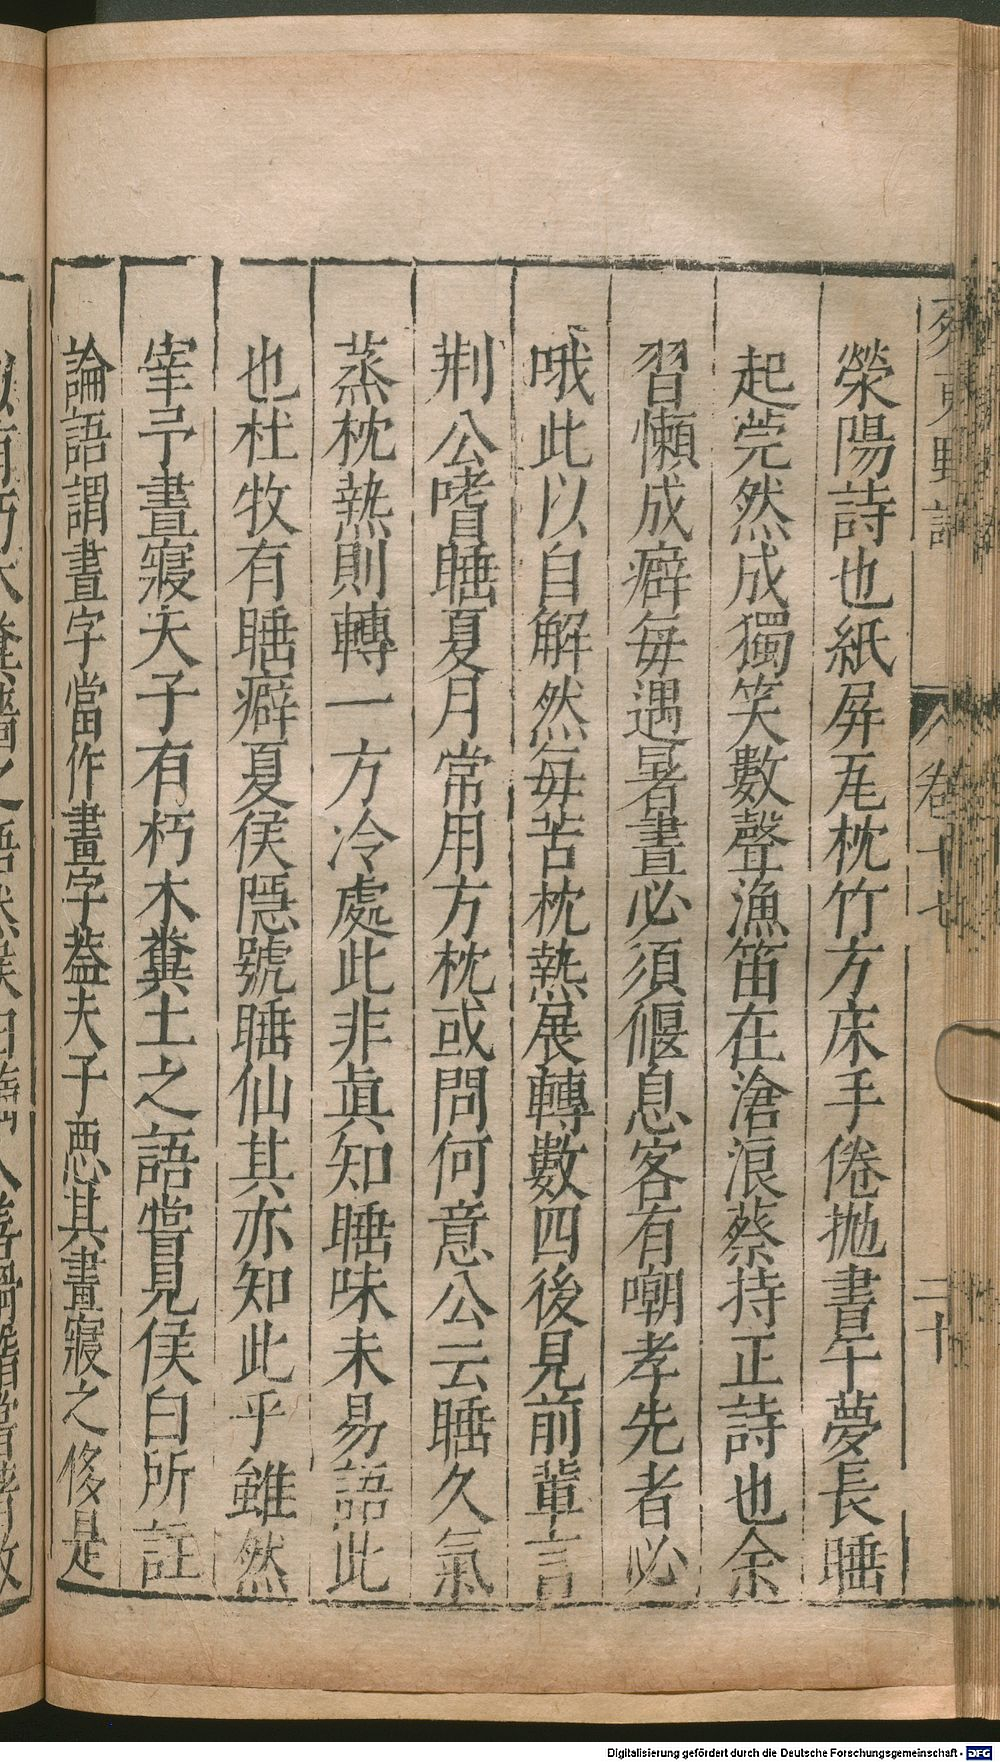 滎陽詩也紙屏瓦枕竹方床手倦抛書午夢長睡
起莞然成獨笑數聲漁笛在滄浪蔡持正詩也余
習懶成癖每遇暑晝必須偃息客有嘲孝先者必
哦此以自解然每苦枕熱展轉數四後見前輩言
荆公嗜睡夏月常用方枕或問何意公云睡久氣
蒸枕熱則轉一方冷處此非眞知睡味未易語此
也杜牧有睡癖夏侯隱號睡仙其亦知此乎雖然
宰予晝寢夫子有朽木糞土之語嘗見侯白所註
論語謂晝字當作畫字葢夫子惡其畫寢之侈是
卷十七
二十
Digitalisierung gefördert durch die Deutsche Forschungsgemeinschaft - DFG